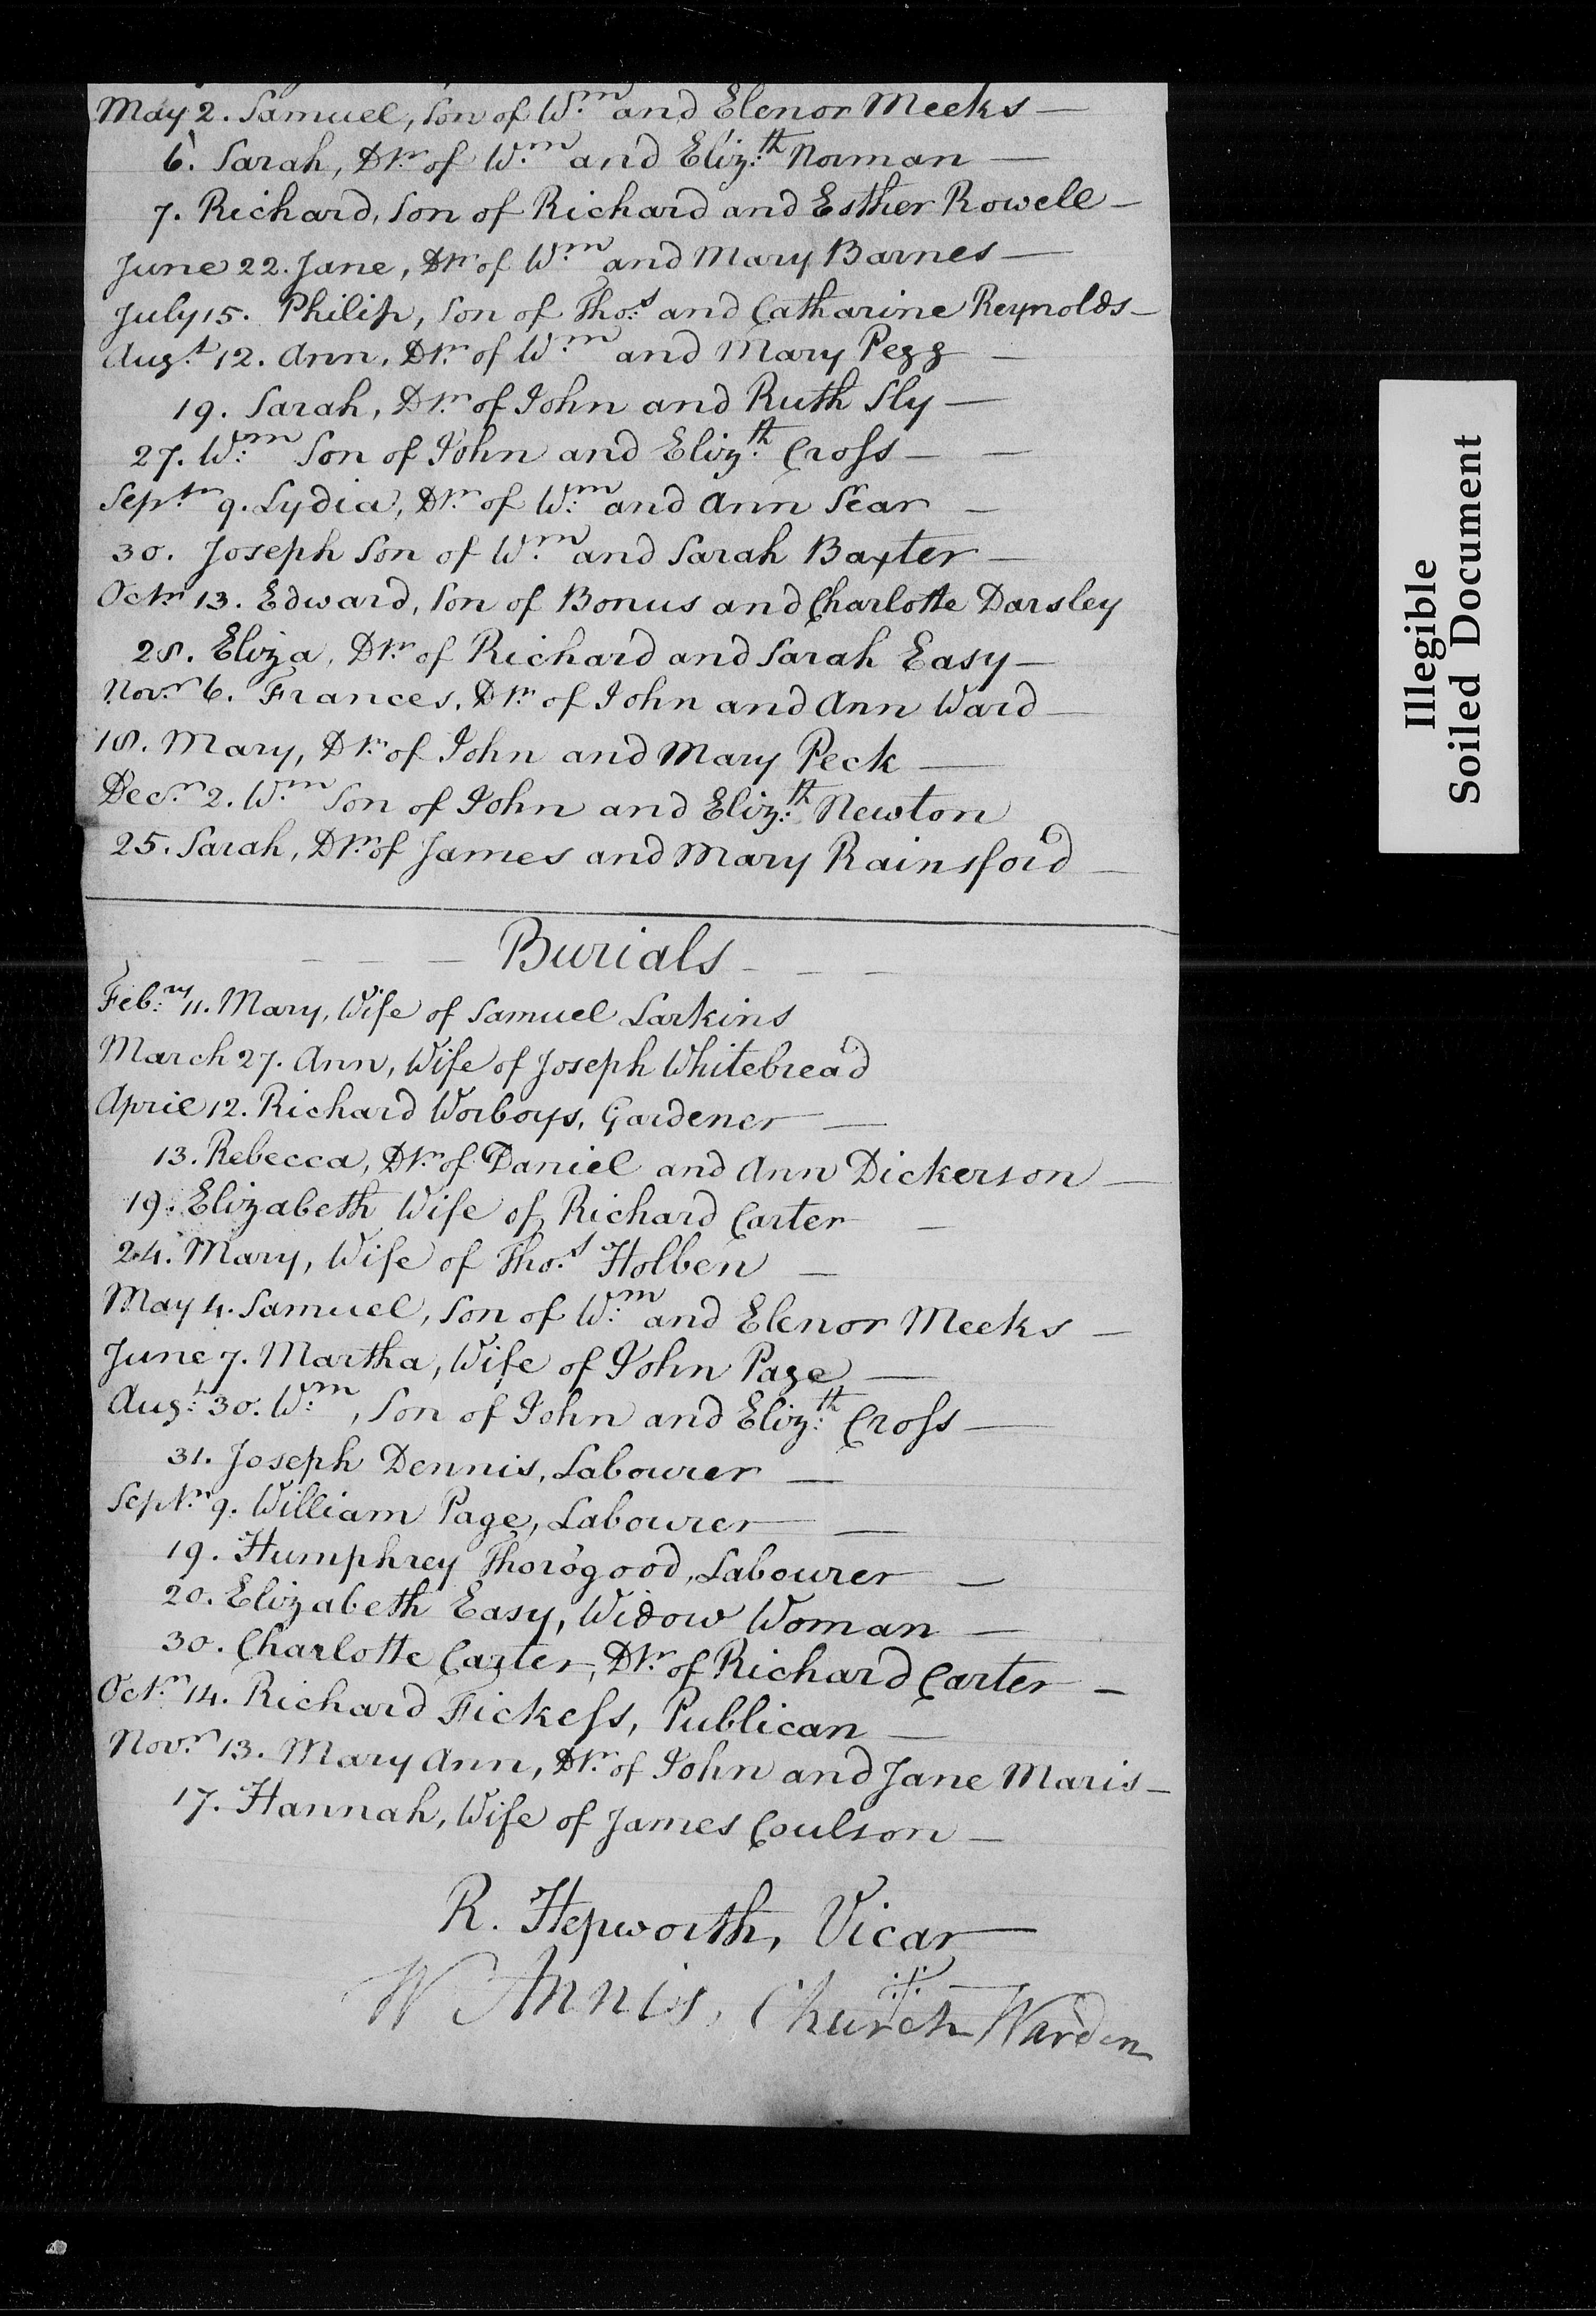 May 2. Samuel, Son of Wm. and Elenor Meeks —
6. Sarah, Dr. of Wm. and Elizth. Norman —
7. Richard, Son of Richard and Esther Rowell —
June 22. Jane, Dr. of Wm. and Mary Barnes —
July 15. Philip, Son of Thos. and Catharine Reynolds —
Augt. 12. Ann, Dr. of Wm. and Mary Pegg —
19. Sarah, Dr. of John and Ruth Sly —
27. Wm. Son of John and Elizth. Cross — —
Septr. 9. Lydia, Dr. of Wm. and Ann Sear —
30. Joseph Son of Wm. and Sarah Baxter —
Octr. 13. Edward, Son of Bonus and Charlotte Darsley
28. Eliza, Dr. of Richard and Sarah Easy —
Novr. 6. Frances, Dr. of John and Ann Ward —
18. Mary, Dr. of John and Mary Peck —
Decr. 2. Wm. Son of John and Elizth. Newton
25. Sarah, Dr. of James and Mary Rainsford —
— — — Burials — — —
Febry. 11. Mary, Wife of Samuel Larkins
March 27. Ann, Wife of Joseph Whitebread
April 12. Richard Worboys, Gardener —
13. Rebecca, Dr. of Daniel and Ann Dickerson —
19. Elizabeth Wife of Richard Carter —
24. Mary, Wife of Thos. Holben —
May 4. Samuel, Son of Wm. and Elenor Meeks —
June 7. Martha, Wife of John Page —
Augt. 30. Wm., Son of John and Elizth. Cross —
31. Joseph Dennis, Labourer —
Septr. 9. William Page, Labourer —
19. Humphrey Thorogood, Labourer —
20. Elizabeth Easy, Widow Woman —
30. Charlotte Carter, Dr. of Richard Carter —
Octr. 14. Richard Fickess, Publican —
Novr. 13. Mary Ann, Dr. of John and Jane Maris —
17. Hannah, Wife of James Coulson —
R. Hepworth, Vicar
W Annis, Church Warden
Illegible
Soiled Document